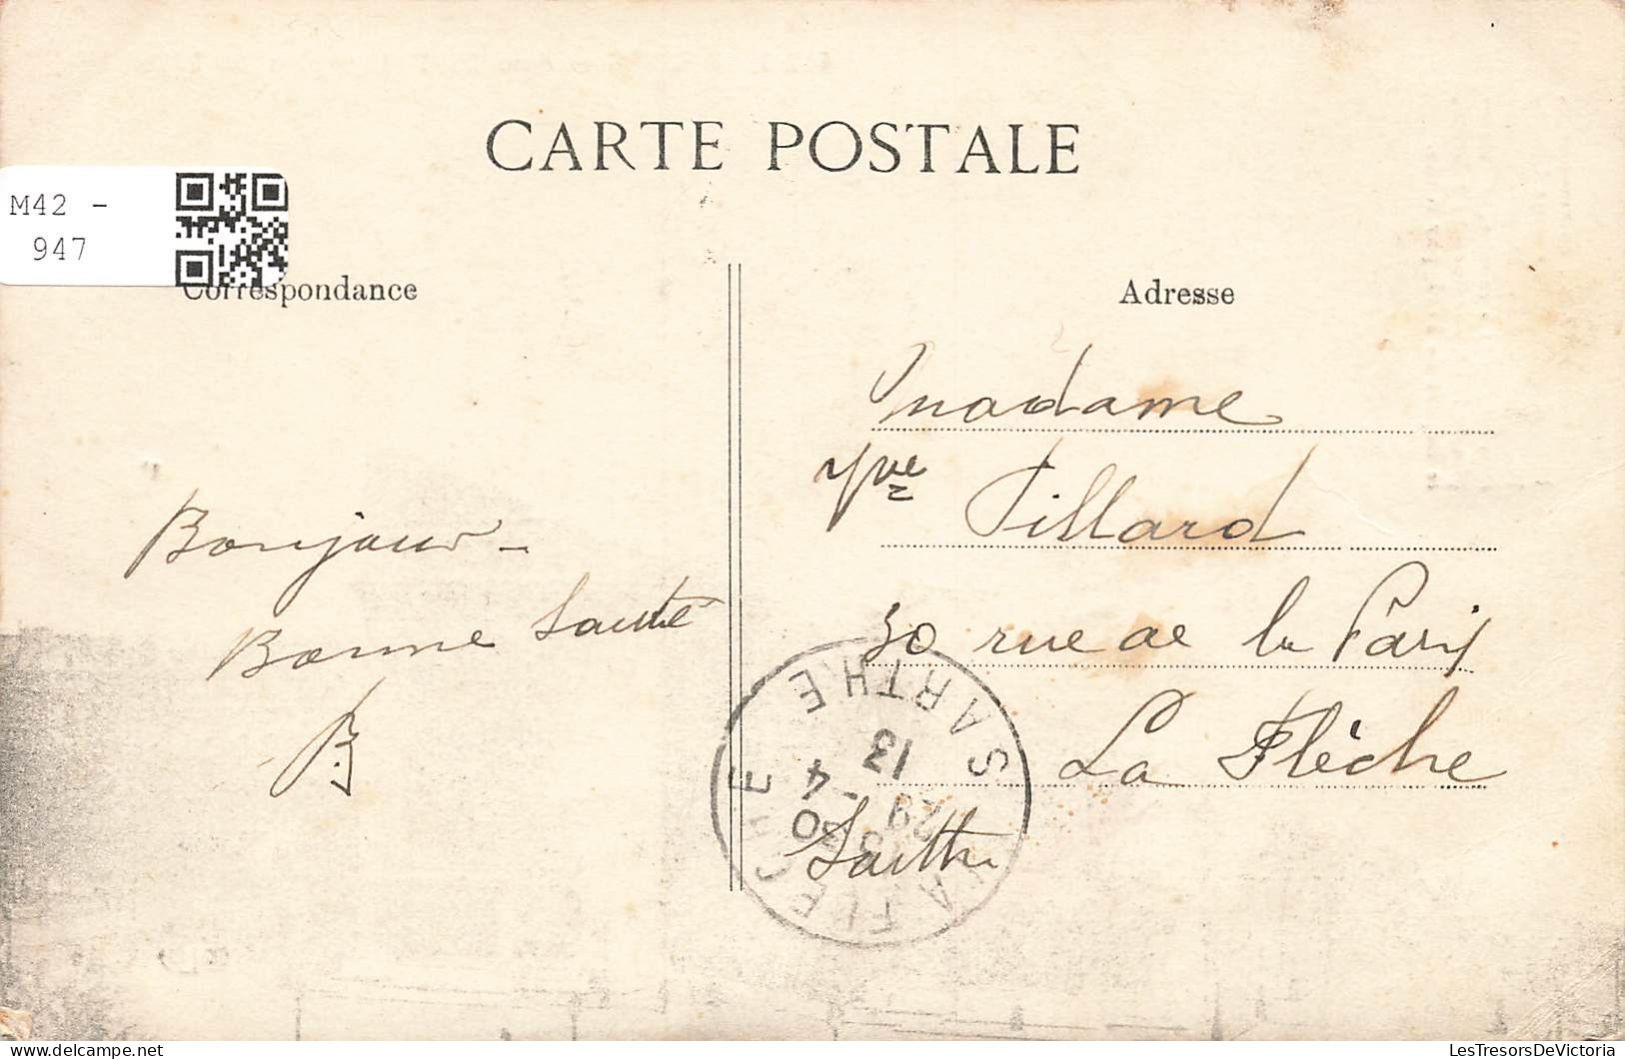 CARTE POSTALE
M42 -
947
Correspondance
Adresse
Madame
Vve Pillard
30 rue de la Paris
La Flèche
Sarthe
Bonjour -
Bonne Santé
B
LA FLECHE SARTHE
13 30
29 - 4
13
LesTresorsDeVictoria